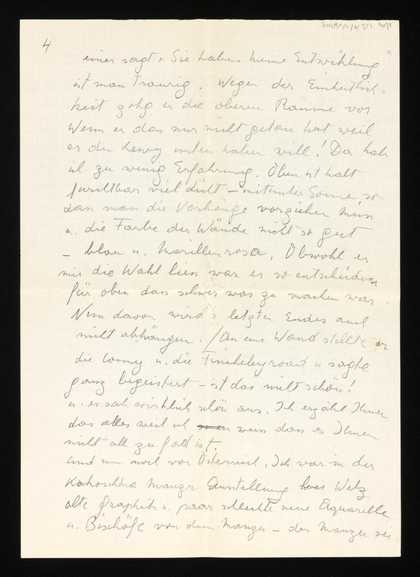 4
einer sagt „Sie haben keine Entwicklung"
ist man traurig. Wegen der Einheitlich-
keit zog er die oberen Räume vor
Wenn er das nur nicht getan hat weil
er den unten haben will! Da hab
ich zu wenig Erfahrung. Oben ist halt
furchtbar viel Licht – mitunter Sonne, so
dass man die Vorhänge vorziehen muss
u. die Farbe der Wände nicht so gut
– blau u. Marillenrosa, Obwohl er
mir die Wahl liess war er so entschieden
für oben dass schwer was zu machen war.
Nun davon wird's letzten Endes auch
nicht abhängen. / An eine Wand stellte er
die u. die u. sagte
ganz begeistert – ist das nicht schön!
u. es sah wirklich schön aus. Ich erzähl Ihnen
das alles weil ich wenn dass es Ihnen
nicht all zu fad ist
und nun noch von Österreich. Ich war in der
Kokoschka Manzu Ausstellung bei Welz
alte Graphik u. paar schlechte neue Aquarelle
u. Bischöfe von dem Manzu – der Manzu